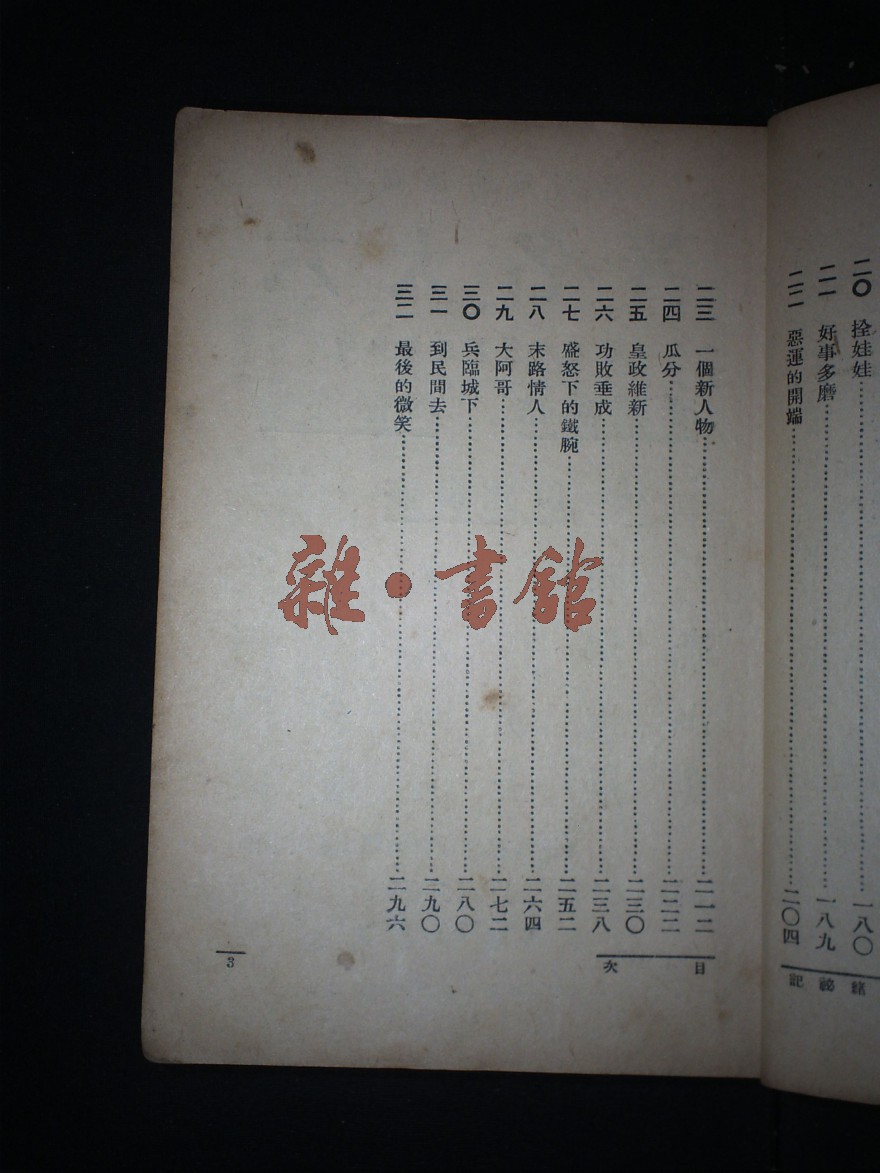 二〇 拴娃娃……一八〇
二一 好事多磨……一八九
二二 惡運的開端……二〇四
緒祕記
二三 一個新人物……二一二
二四 瓜分……二二二
二五 皇政維新……二三〇
二六 功敗垂成……二三八
二七 盛怒下的鐵腕……二五二
二八 末路情人……二六四
二九 大阿哥……二七二
三〇 兵臨城下……二八〇
三一 到民間去……二九〇
三二 最後的微笑……二九六
目次
3
雜·書館